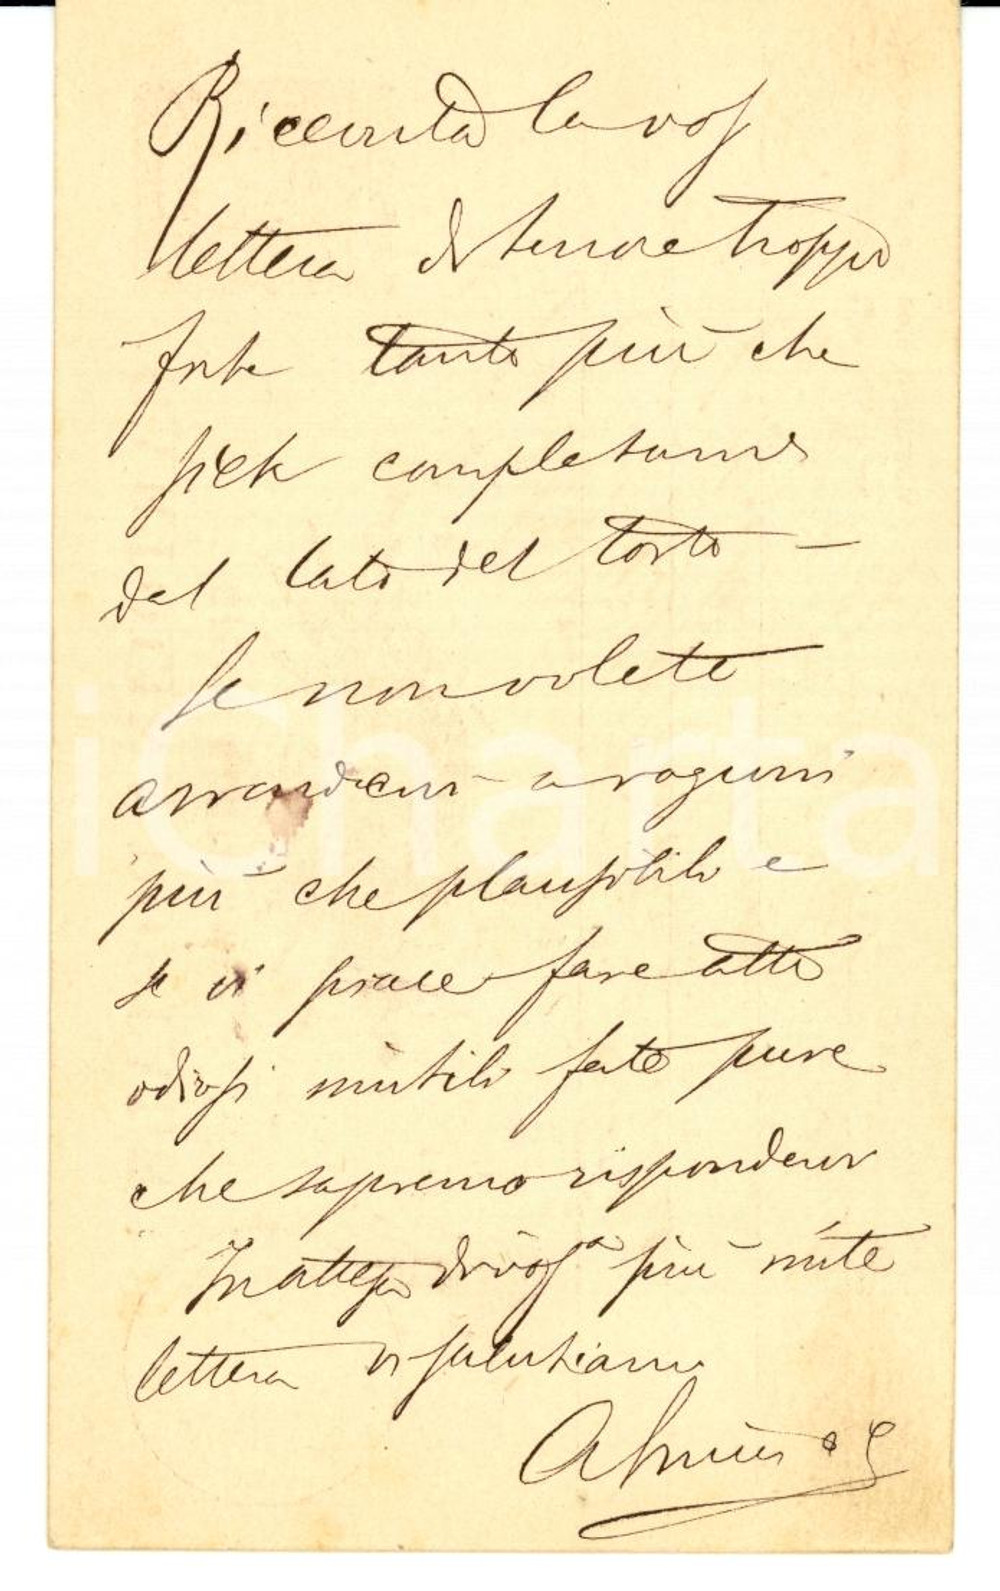 Riceuta la vos
lettera di tenore troppo
forte tanto più che
siete completame
dal lato del torto –
Se non volete
arrendervi a ragioni
più che plausibili e
se vi piace fare atti
odiosi inutili fate pure
che sapremo rispondervi
In attesa di vosª più mite
lettera vi salutiamo
iCharta